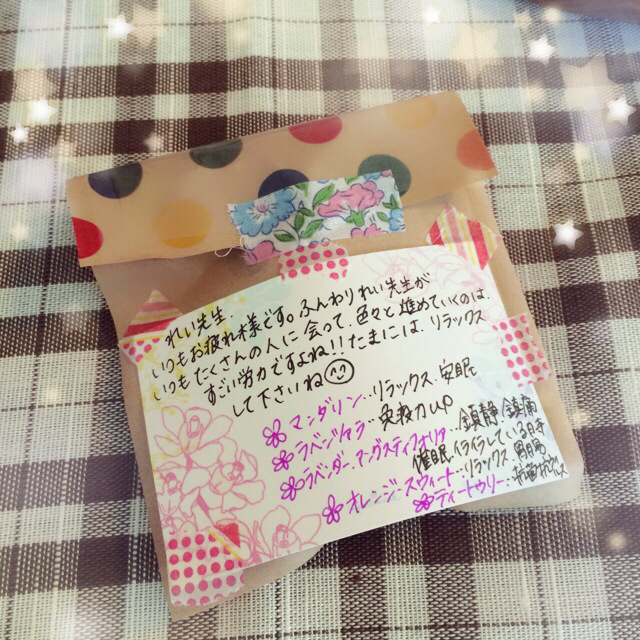 れい先生.
いつもお疲れ様です。ふんわりれい先生が
いつもたくさんの人に会って、色々と進めていくのは、
すごい労力ですよね!!たまには、リラックス
して下さいね
マンダリン…リラックス、安眠
ラベンサラ…免疫力up
ラベンダー.アングスティフォリア…鎮静、鎮痛
催眠、イライラしている時
オレンジ・スウィート…リラックス、胃腸
ティートゥリー…抗菌